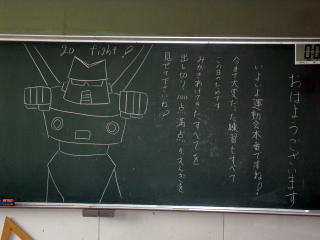 go fight!
おはようございます
いよいよ運動会本番ですね!
今まで大変だった練習もすべて
この日のためです
みがきあげてきたすべてを
出し切り100点満点のえんぎを
見せて下さいね!